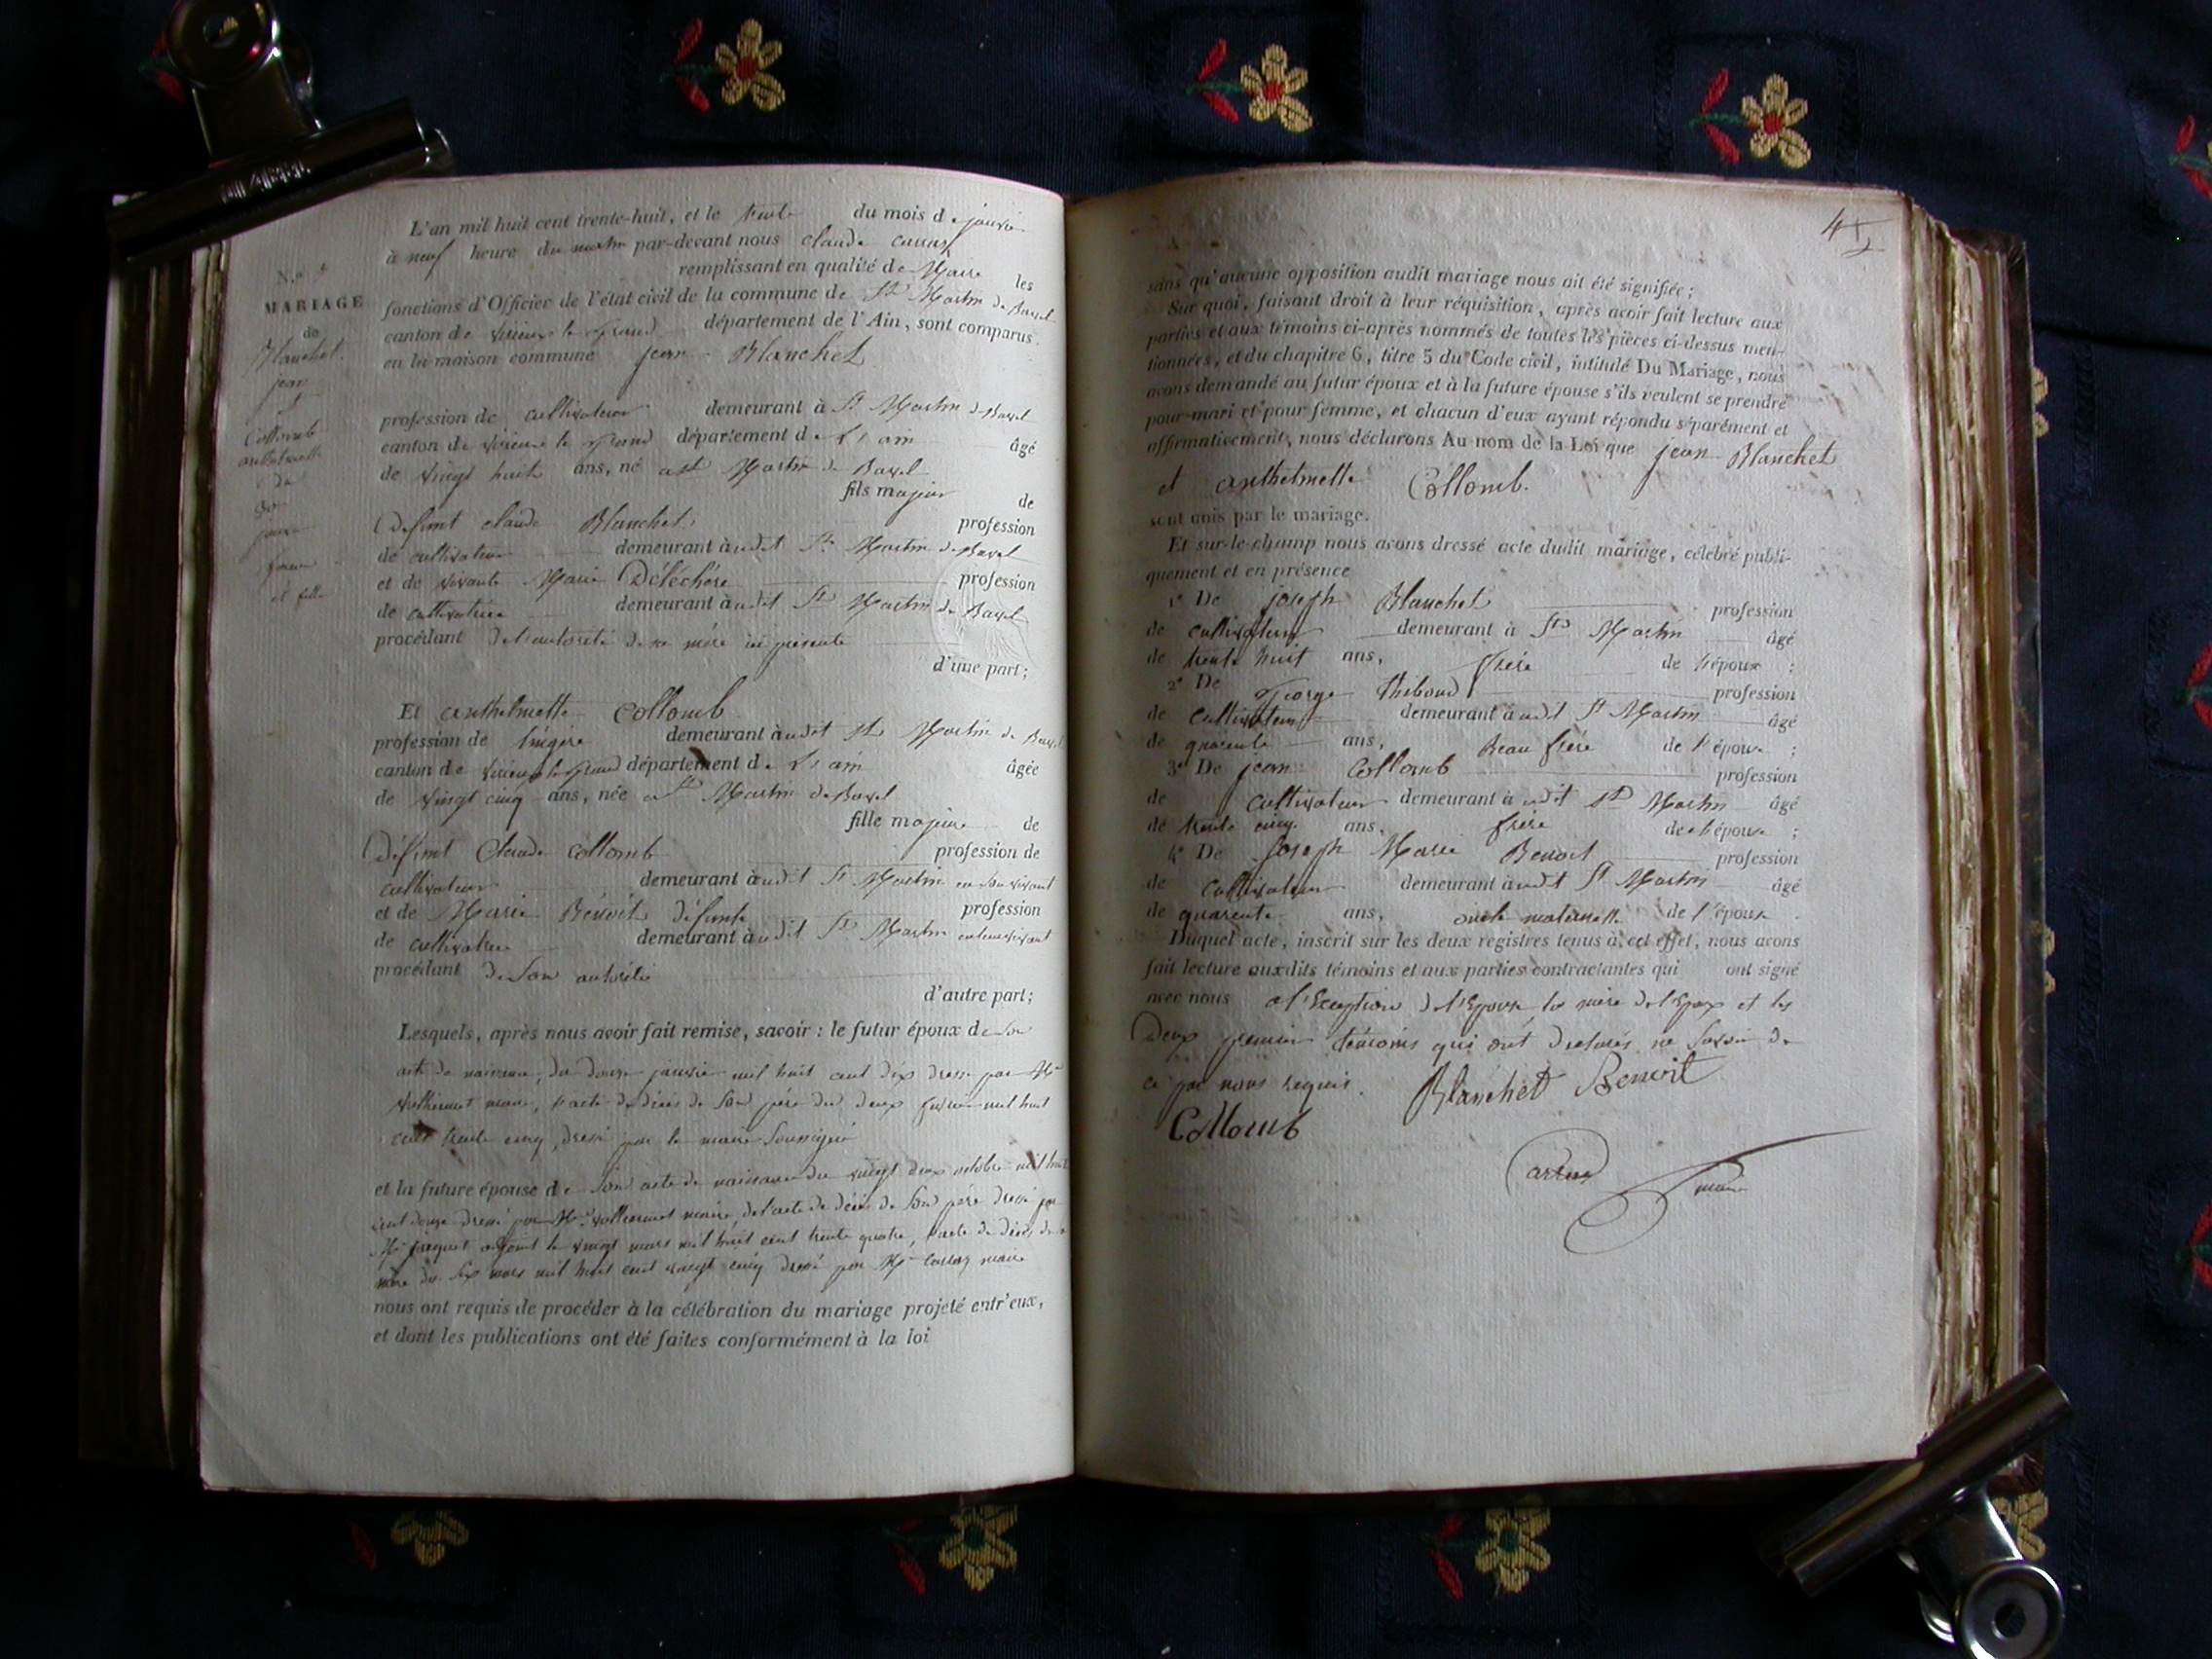 N.º
MARIAGE
de
Blanchet
jean
et
Collomb
anthelmette
du
30
janvier
L'an mil huit cent trente-huit, et le trente du mois de janvier
à neuf heure du matin par-devant nous claude
remplissant en qualité de Maire les
fonctions d'Officier de l'état civil de la commune de St Martin de Bavel
canton de virieu le grand département de l'Ain, sont comparus
en la maison commune jean Blanchet
profession de cultivateur demeurant à St Martin de Bavel
canton de virieu le grand département de L'ain âgé
de vingt huit ans, né a St Martin de Bavel
fils majeur de
Defunt claude Blanchet profession
de cultivateur demeurant àudit St Martin de Bavel
et de vivante Marie Déléchére profession
de cultivatrice demeurant àudit St Martin de Bavel
procédant de l'autorité de sa mére ici présente
d'une part;
Et anthelmette Collomb
profession de lingere demeurant àudit St Martin de Bavel
canton de virieu le grand département de L'ain âgée
de vingt cinq ans, née a St Martin de Bavel
fille majeure de
Défunt Claude Collomb profession de
cultivateur demeurant àudit St Martin en son vivant
et de Marie Benoit défunte profession
de cultivatrice demeurant àudit St Martin en son vivant
procédant de son autorité
d'autre part;
Lesquels, après nous avoir fait remise, savoir : le futur époux de son
acte de naissance, du douze janvier mil huit cent dix dressé par Mr
maire, l'acte de décés de son pére du deux fevrier mil huit
cent trente cinq, dressé par le maire soussigné
et la future épouse de son acte de naissance du vingt deux octobre mil huit
cent douze dressé par Mr maire, de l'acte de décés de son pére dressé par
Mr adjoint le vingt mars mil huit cent trente quatre, l'acte de décés de sa
mére du six mars mil huit cent vingt cinq dressé par Mr maire
nous ont requis de procéder à la célébration du mariage projeté entr'eux,
et dont les publications ont été faites conformément à la loi
sans qu'aucune opposition audit mariage nous ait été signifiée;
Sur quoi, faisant droit à leur réquisition, après avoir fait lecture aux
parties et aux témoins ci-après nommés de toutes les pièces ci-dessus men-
tionnées, et du chapitre 6, titre 5 du Code civil, intitulé Du Mariage, nous
avons demandé au futur époux et à la future épouse s'ils veulent se prendre
pour mari et pour femme, et chacun d'eux ayant répondu séparément et
affirmativement, nous déclarons Au nom de la Loi que jean Blanchet
et anthelmette Collomb.
sont unis par le mariage.
Et sur-le-champ nous avons dressé acte dudit mariage, célébré publi-
quement et en présence
1º De joseph Blanchet profession
de cultivateur demeurant à St Martin âgé
de trente huit ans, frére de l'époux ;
2º De George Thiboud profession
de cultivateur demeurant àudit St Martin âgé
de quarente ans, Beau frére de l'épouse ;
3º De jean Collomb profession
de cultivateur demeurant àudit St Martin âgé
de trente cinq ans, frére de l'épouse ;
4º De Joseph Marie Benoit profession
de cultivateur demeurant àudit St Martin âgé
de quarente ans, oncle maternelle de l'épouse
Duquel acte, inscrit sur les deux registres tenus à cet effet, nous avons
fait lecture auxdits témoins et aux parties contractantes qui ont signé
avec nous a l'Exception de l'Epouse, la mére de l'Epoux et les
Deux premier témoins qui ont declarés ne savoir de
ce par nous requis. Blanchet Benoit
Collomb
maire